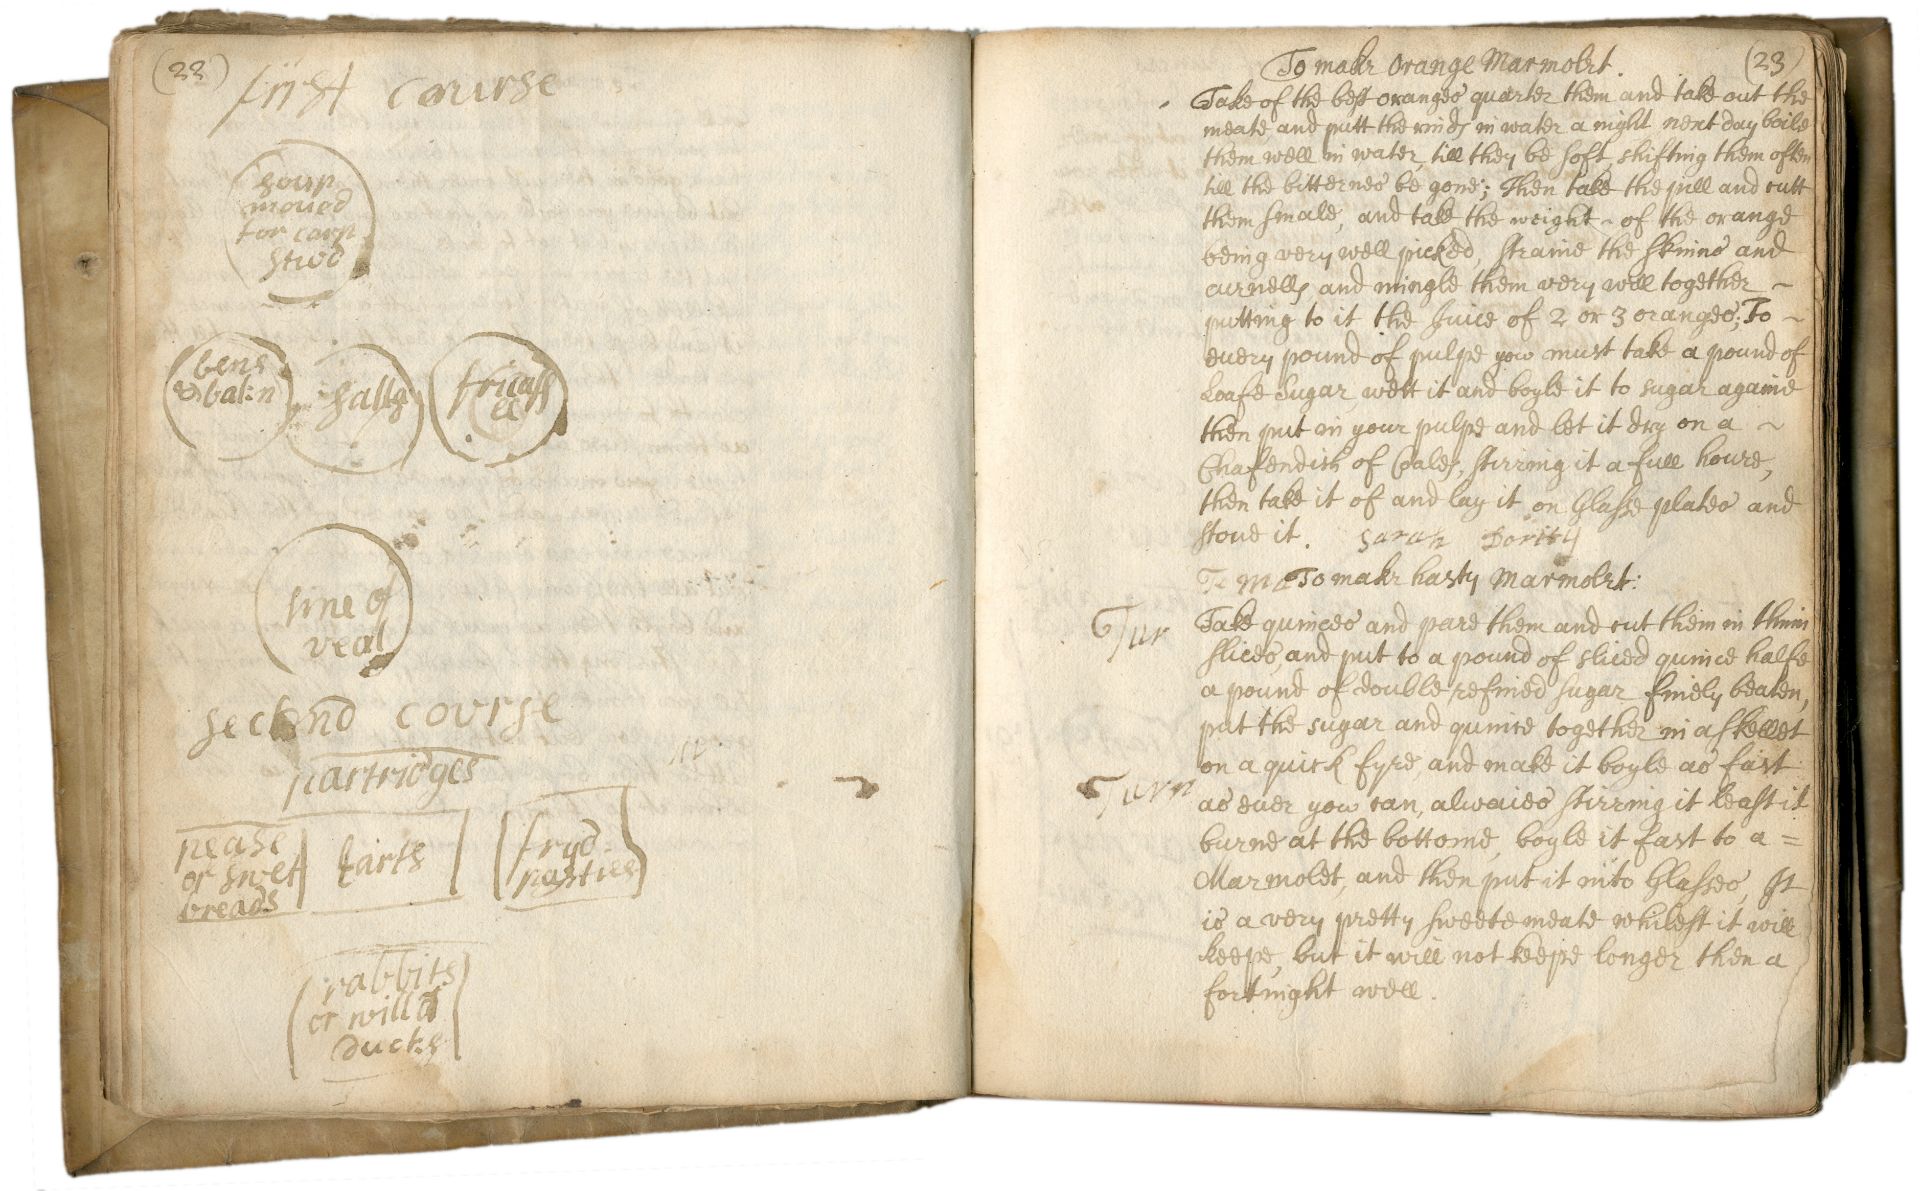 (22)
first course
soup
moued
for carp
stwd
bens
& bak:n
sally
fricass
a
line of
veal
second course
partridges
pease
or swet
breads
tarts
fryd
pasties
rabbits
or willd
ducks
(23)
To make Orange Marmolet.
Take of the best oranges quarter them and take out the
meate, and putt the rinds in water a night next day boile
them well in water, till they be soft, shifting them often
till the bitternes be gone; Then take the pill and cutt
them smale, and take the weight of the orange
being very well picked, straine the skinns and
curnells, and mingle them very well together
putting to it the Juice of 2 or 3 oranges; To
euery pound of pulpe you must take a pound of
Loafe Sugar, wett it and boyle it to sugar againe
then put in your pulpe and let it dry on a
Chafendish of Coales, stirring it a full houre,
then take it of and lay it on Glasse plates and
stoue it. Sarah
To make hasty Marmolet:
Take quinces and pare them and cut them in thinn
Tur
slices, and put to a pound of sliced quince halfe
a pound of double refined sugar finely beaten,
put the sugar and quince together in a skellet
on a quick fyre, and make it boyle as fast
Turn
as euer you can, alwaies stirring it least it
burne at the bottome, boyle it fast to a =
Marmolet, and then put it into Glasses, It
is a very pretty sweete meate whilest it will
keepe, but it will not keepe longer then a
fortnight well.